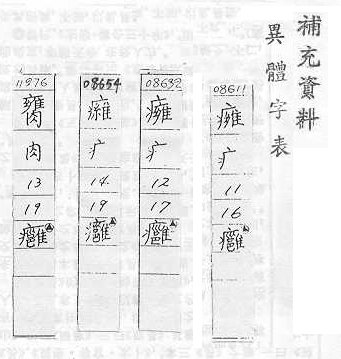 補充資料
異體字表
08611
疒
11
16
癰
08632
疒
12
17
癰
08654
疒
14
19
癰
11976
肉
13
19
癰